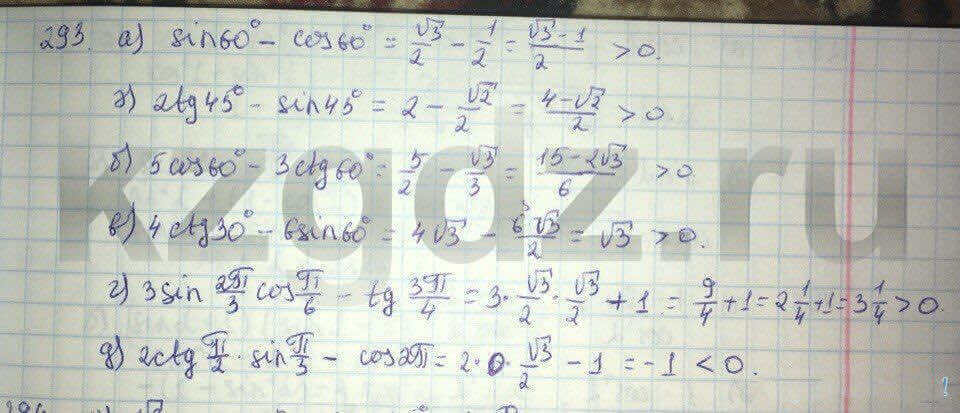 293. а) sin60° - cos60° = √3/2 - 1/2 = (√3-1)/2 > 0.
ә) 2tg45° - sin45° = 2 - √2/2 = (4-√2)/2 > 0
б) 5cos60° - 3ctg60° = 5/2 - √3/3 = (15-2√3)/6 > 0
в) 4ctg30° - 6sin60° = 4√3 - 6³√3/2 = √3 > 0.
г) 3sin 2π/3 cos π/6 - tg 3π/4 = 3·√3/2·√3/2 + 1 = 9/4 + 1 = 2 1/4 + 1 = 3 1/4 > 0.
д) 2ctg π/2 · sin π/3 - cos2π = 2·0·√3/2 - 1 = -1 < 0.
kzgdz.ru